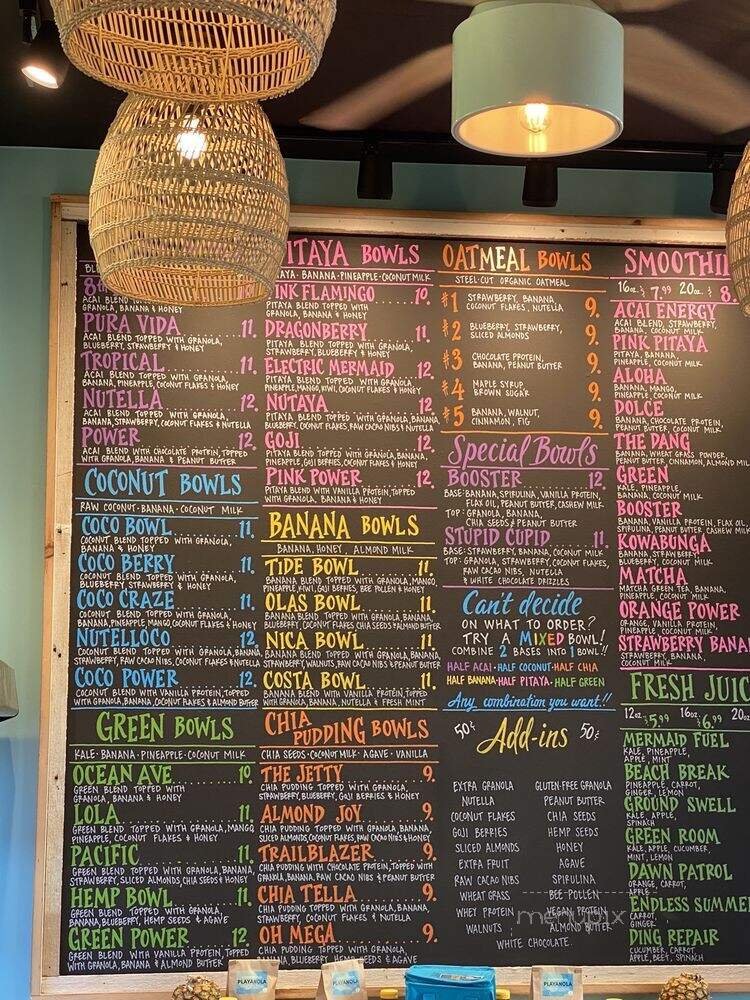 BL
8th
ACAI BLEND TOPPED WITH
GRANOLA, BANANA & HONEY
PURA VIDA 11.
ACAI BLEND TOPPED WITH GRANOLA,
BLUEBERRY, STRAWBERRY & HONEY
TROPICAL 11.
ACAI BLEND TOPPED WITH GRANOLA,
BANANA, PINEAPPLE, COCONUT FLAKES & HONEY
NUTELLA 12.
ACAI BLEND TOPPED WITH GRANOLA,
BANANA, STRAWBERRY, COCONUT FLAKES & NUTELLA
POWER 12.
ACAI BLEND WITH CHOCOLATE PROTEIN, TOPPED
WITH GRANOLA, BANANA & PEANUT BUTTER
COCONUT BOWLS
RAW COCONUT · BANANA · COCONUT MILK
COCO BOWL 11.
COCONUT BLEND TOPPED WITH GRANOLA,
BANANA & HONEY
COCO BERRY 11.
COCONUT BLEND TOPPED WITH GRANOLA,
BLUEBERRY, STRAWBERRY & HONEY
COCO CRAZE 11.
COCONUT BLEND TOPPED WITH GRANOLA,
BANANA, PINEAPPLE, MANGO, COCONUT FLAKES & HONEY
NUTELLOCO 12.
COCONUT BLEND TOPPED WITH GRANOLA, BANANA,
STRAWBERRY, RAW CACAO NIBS, COCONUT FLAKES & NUTELLA
COCO POWER 12.
COCONUT BLEND WITH VANILLA PROTEIN, TOPPED
WITH GRANOLA, BANANA, COCONUT FLAKES & ALMOND BUTTER
GREEN BOWLS
KALE · BANANA · PINEAPPLE · COCONUT MILK
OCEAN AVE 10.
GREEN BLEND TOPPED WITH
GRANOLA, BANANA & HONEY
LOLA 11.
GREEN BLEND TOPPED WITH GRANOLA, MANGO
PINEAPPLE, COCONUT FLAKES & HONEY
PACIFIC 11.
GREEN BLEND TOPPED WITH GRANOLA, BANANA,
STRAWBERRY, SLICED ALMONDS, CHIA SEEDS & HONEY
HEMP BOWL 11.
GREEN BLEND TOPPED WITH GRANOLA,
BANANA, BLUEBERRY, HEMP SEEDS & AGAVE
GREEN POWER 12.
GREEN BLEND WITH VANILLA PROTEIN, TOPPED
WITH GRANOLA, BANANA & ALMOND BUTTER
PITAYA BOWLS
PITAYA · BANANA · PINEAPPLE · COCONUT MILK
PINK FLAMINGO 10.
PITAYA BLEND TOPPED WITH
GRANOLA, BANANA & HONEY
DRAGONBERRY 11.
PITAYA BLEND TOPPED WITH GRANOLA,
STRAWBERRY, BLUEBERRY & HONEY
ELECTRIC MERMAID 12.
PITAYA BLEND TOPPED WITH GRANOLA, BANANA,
PINEAPPLE, MANGO, KIWI, COCONUT FLAKES & HONEY
NUTAYA 12.
PITAYA BLEND TOPPED WITH GRANOLA, BANANA,
BLUEBERRY, COCONUT FLAKES, RAW CACAO NIBS & NUTELLA
GOJI 12.
PITAYA BLEND TOPPED WITH GRANOLA, BANANA,
PINEAPPLE, GOJI BERRIES, COCONUT FLAKES & HONEY
PINK POWER 12.
PITAYA BLEND WITH VANILLA PROTEIN, TOPPED
WITH GRANOLA, BANANA & HONEY
BANANA BOWLS
BANANA, HONEY, ALMOND MILK
TIDE BOWL 11.
BANANA BLEND TOPPED WITH GRANOLA, MANGO,
PINEAPPLE, KIWI, GOJI BERRIES, BEE POLLEN & HONEY
OLAS BOWL 11.
BANANA BLEND TOPPED WITH GRANOLA, BANANA,
BLUEBERRY, COCONUT FLAKES CHIA SEEDS & ALMOND BUTTER
NICA BOWL 11.
BANANA BLEND TOPPED WITH GRANOLA, BANANA,
STRAWBERRY, WALNUTS, RAW CACAO NIBS & PEANUT BUTTER
COSTA BOWL 11.
BANANA BLEND WITH VANILLA PROTEIN, TOPPED
WITH GRANOLA, BANANA, NUTELLA & FRESH MINT
CHIA
PUDDING BOWLS
CHIA SEEDS · COCONUT MILK · AGAVE · VANILLA
THE JETTY 9.
CHIA PUDDING TOPPED WITH GRANOLA,
STRAWBERRY, BLUEBERRY, GOJI BERRIES & HONEY
ALMOND JOY 9.
CHIA PUDDING TOPPED WITH GRANOLA, BANANA,
SLICED ALMONDS, COCONUT FLAKES, RAW CACAO NIBS & HONEY
TRAILBLAZER 9.
CHIA PUDDING WITH CHOCOLATE PROTEIN, TOPPED WITH
GRANOLA, BANANA, RAW CACAO NIBS & PEANUT BUTTER
CHIA TELLA 9.
CHIA PUDDING TOPPED WITH GRANOLA, BANANA,
STRAWBERRY, COCONUT FLAKES & NUTELLA
OH MEGA 9.
CHIA PUDDING TOPPED WITH GRANOLA,
BANANA, BLUEBERRY, HEMP SEEDS & AGAVE
OATMEAL BOWLS
STEEL-CUT ORGANIC OATMEAL
#1 STRAWBERRY, BANANA, 9.
COCONUT FLAKES, NUTELLA
#2 BLUEBERRY, STRAWBERRY, 9.
SLICED ALMONDS
#3 CHOCOLATE PROTEIN, 9.
BANANA, PEANUT BUTTER
#4 MAPLE SYRUP 9.
BROWN SUGAR
#5 BANANA, WALNUT, 9.
CINNAMON, FIG
Special Bowls
BOOSTER 12.
BASE: BANANA, SPIRULINA, VANILLA PROTEIN,
FLAX OIL, PEANUT BUTTER, CASHEW MILK
TOP: GRANOLA, BANANA,
CHIA SEEDS & PEANUT BUTTER
STUPID CUPID 11.
BASE: STRAWBERRY, BANANA, COCONUT MILK
TOP: GRANOLA, STRAWBERRY, COCONUT FLAKES,
RAW CACAO NIBS, NUTELLA
& WHITE CHOCOLATE DRIZZLES
Can't decide
ON WHAT TO ORDER?
TRY A MIXED BOWL!
COMBINE 2 BASES INTO 1 BOWL!!
HALF ACAI · HALF COCONUT · HALF CHIA
HALF BANANA · HALF PITAYA · HALF GREEN
Any combination you want!!
50¢ Add-ins 50¢
EXTRA GRANOLA GLUTEN-FREE GRANOLA
NUTELLA PEANUT BUTTER
COCONUT FLAKES CHIA SEEDS
GOJI BERRIES HEMP SEEDS
SLICED ALMONDS HONEY
EXTRA FRUIT AGAVE
RAW CACAO NIBS SPIRULINA
WHEAT GRASS BEE POLLEN
WHEY PROTEIN VEGAN PROTEIN
WALNUTS ALMOND BUTTER
WHITE CHOCOLATE
menupix
SMOOTHI
16oz. $7.99 20oz. $8.
ACAI ENERGY
ACAI BLEND, STRAWBERRY,
BANANA, COCONUT MILK
PINK PITAYA
PITAYA, BANANA,
PINEAPPLE, COCONUT MILK
ALOHA
BANANA, MANGO,
PINEAPPLE, COCONUT MILK
DOLCE
BANANA, CHOCOLATE PROTEIN,
PEANUT BUTTER, COCONUT MILK
THE DANG
BANANA, WHEAT GRASS POWDER,
PEANUT BUTTER, CINNAMON, ALMOND MIL
GREEN
KALE, PINEAPPLE,
BANANA, COCONUT MILK
BOOSTER
BANANA, VANILLA PROTEIN, FLAX OIL,
SPIRULINA, PEANUT BUTTER, CASHEW MIL
KOWABUNGA
BANANA, STRAWBERRY,
BLUEBERRY, COCONUT MILK
MATCHA
MATCHA GREEN TEA, BANANA,
PINEAPPLE, COCONUT MILK
ORANGE POWER
ORANGE, VANILLA PROTEIN,
PINEAPPLE, COCONUT MILK
STRAWBERRY BANA
STRAWBERRY, BANANA,
COCONUT MILK
FRESH JUIC
12oz $5.99 16oz $6.99 20oz
MERMAID FUEL
KALE, PINEAPPLE,
APPLE, MINT
BEACH BREAK
PINEAPPLE, CARROT,
GINGER, LEMON
GROUND SWELL
KALE, APPLE,
SPINACH
GREEN ROOM
KALE, APPLE, CUCUMBER,
MINT, LEMON
DAWN PATROL
ORANGE, CARROT,
APPLE
ENDLESS SUMMER
CARROT,
GINGER
DING REPAIR
CUCUMBER, CARROT,
APPLE, BEET, SPINACH
PLAYANOLA
PLAYANOLA
PLAYANOLA